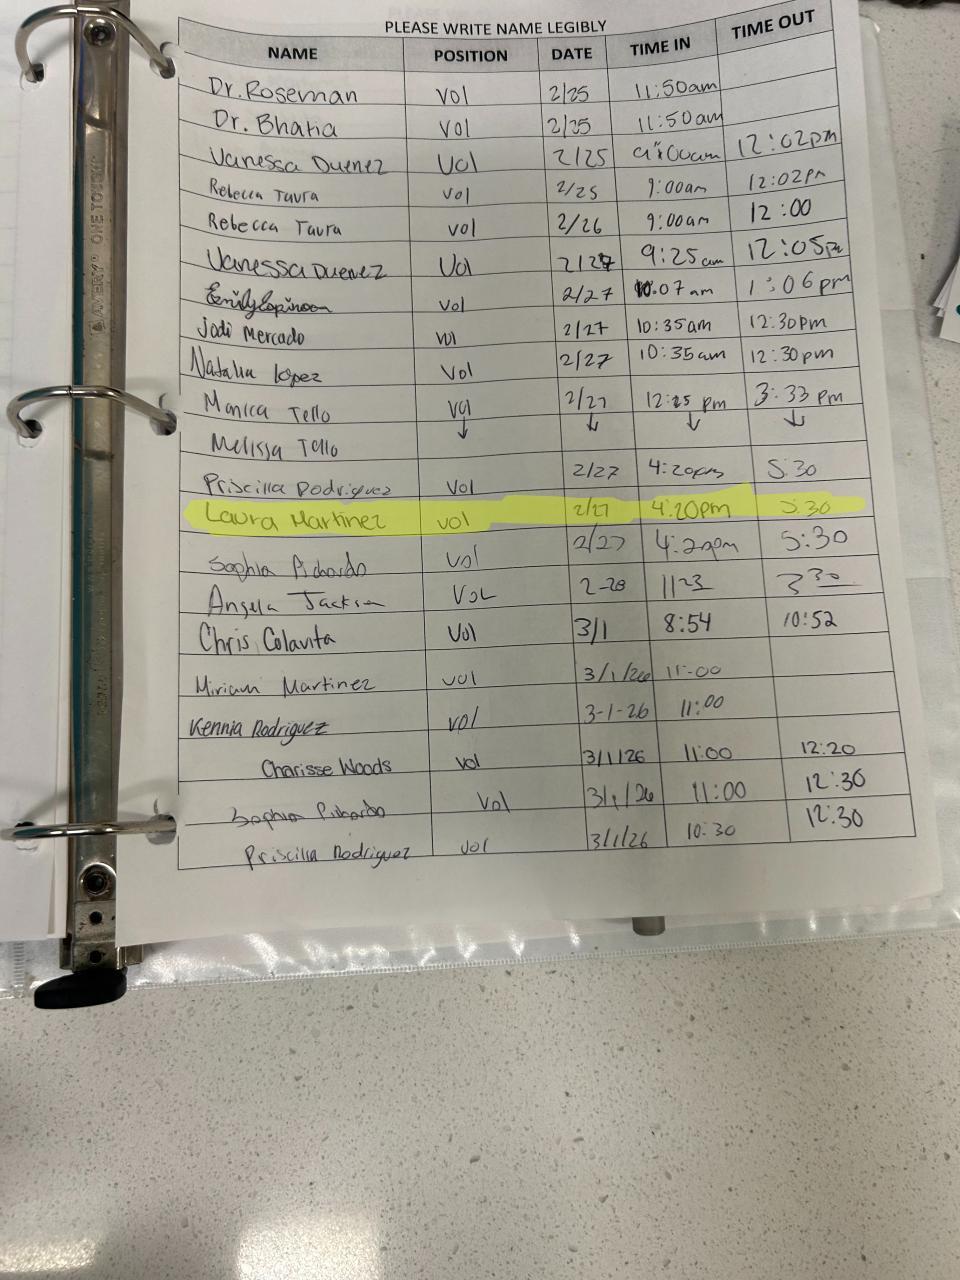 PLEASE WRITE NAME LEGIBLY
NAME POSITION DATE TIME IN TIME OUT
Dr. Roseman vol 2/25 11:50am
Dr. Bhatia vol 2/25 11:50am
Vanessa Duenez Vol 2/25 9:00am 12:02pm
Rebecca Taura vol 2/25 9:00am 12:02pm
Rebecca Taura vol 2/26 9:00am 12:00
Vanessa Duenez Vol 2/27 9:25am 12:05pm
Emily Espinoza vol 2/27 10:07am 1:06pm
Jodi Mercado vol 2/27 10:35am 12:30pm
Natalia Lopez Vol 2/27 10:35am 12:30pm
Monica Tello vol 2/27 12:25 pm 3:33 pm
Melissa Tello ↓ ↓ ↓ ↓
Priscilla Rodriguez Vol 2/27 4:20pm 5:30
Laura Martinez vol 2/27 4:20pm 5:30
Sophia Pichardo Vol 2/27 4:20pm 5:30
Angela Jackson VOL 2-28 1123 3 30
Chris Colavita Vol 3/1 8:54 10:52
Miriam Martinez vol 3/1/26 11:00
Kennia Rodriguez vol 3-1-26 11:00
Charisse Woods vol 3/1/26 11:00 12:20
Sophia Pichardo Vol 3/1/26 11:00 12:30
Priscilla Rodriguez vol 3/1/26 10:30 12:30
AVERY ONE TOUCH